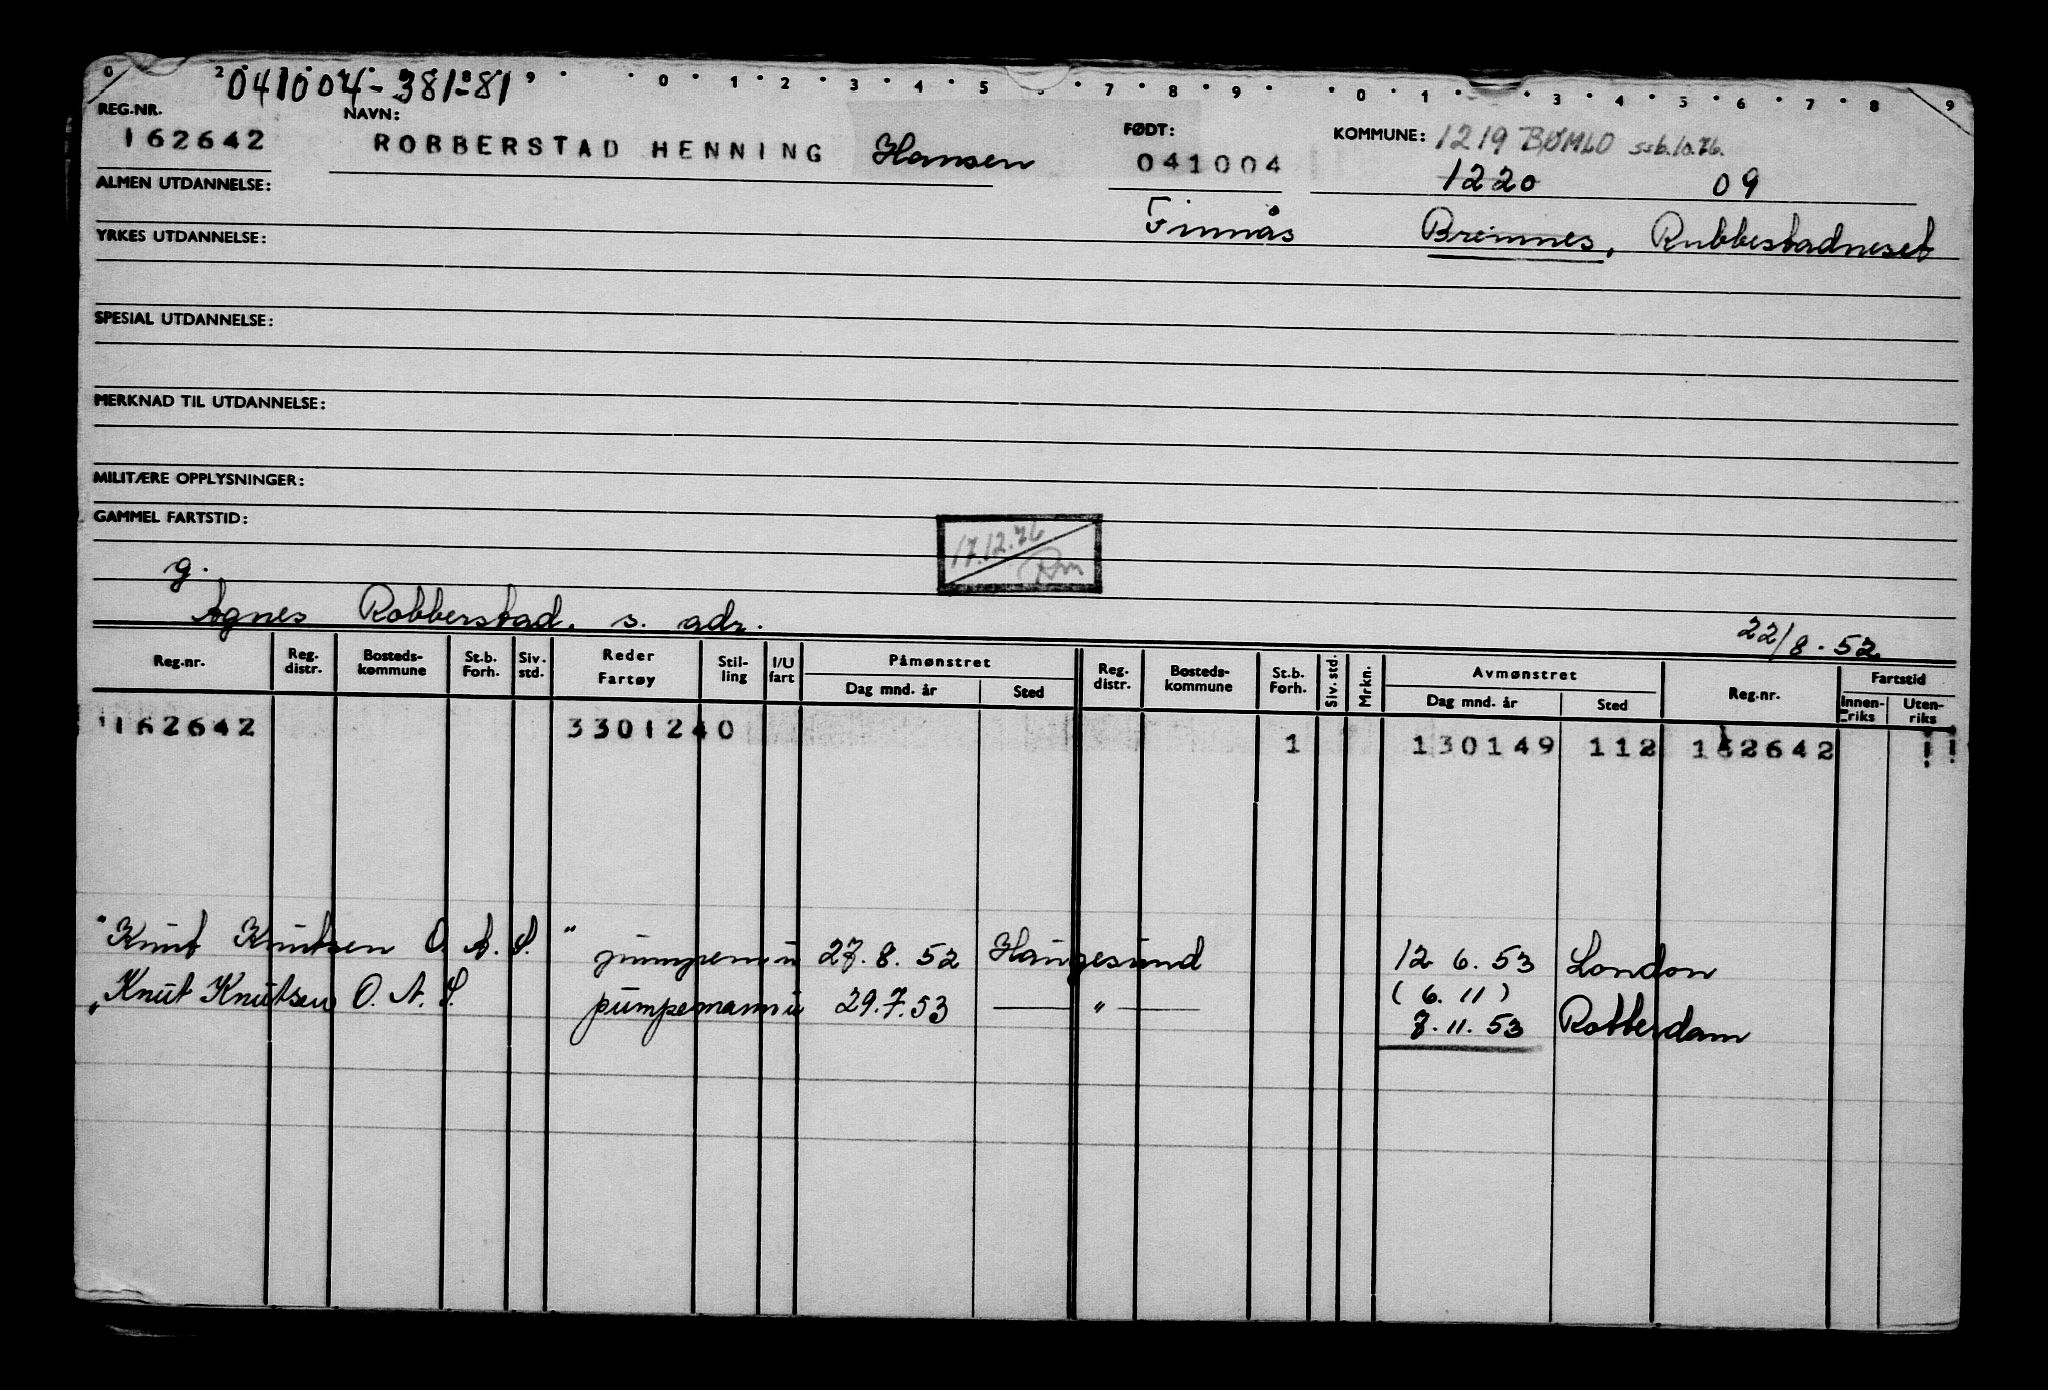 0 2 9 0 1 2 3 4 5 7 8 9 0 1 3 4 5 6 7 8 9
041004-38181
REG.NR. NAVN: FØDT: KOMMUNE: 1219 BØMLO ssb.10.76.
162642 ROBBERSTAD HENNING Hansen 041004 1220 09
ALMEN UTDANNELSE:
Finnås Bremnes, Rubbestadneset
YRKES UTDANNELSE:
SPESIAL UTDANNELSE:
MERKNAD TIL UTDANNELSE:
MILITÆRE OPPLYSNINGER:
GAMMEL FARTSTID:
17.12.76
g.
Agnes Robberstad. s. adr. 22/8.52
Reg.nr. Reg. distr. Bosteds-kommune St.b. Forh. Siv. std. Reder Fartøy Stil-ling I/U fart Påmønstret Dag mnd. år Sted Reg. distr. Bosteds-kommune St.b. Forh. Siv. std. Mrkn. Avmønstret Dag mnd. år Sted Reg.nr. Fartstid Innen-riks Uten-riks
162642 3301240 1 130149 112 162642
"Knut Knutsen O. A. S." pumpem u 27.8.52 Haugesund 12 6.53 London
"Knut Knutsen O. A. S. pumpemann u 29.7.53 — " — (6.11)
7.11.53 Rotterdam